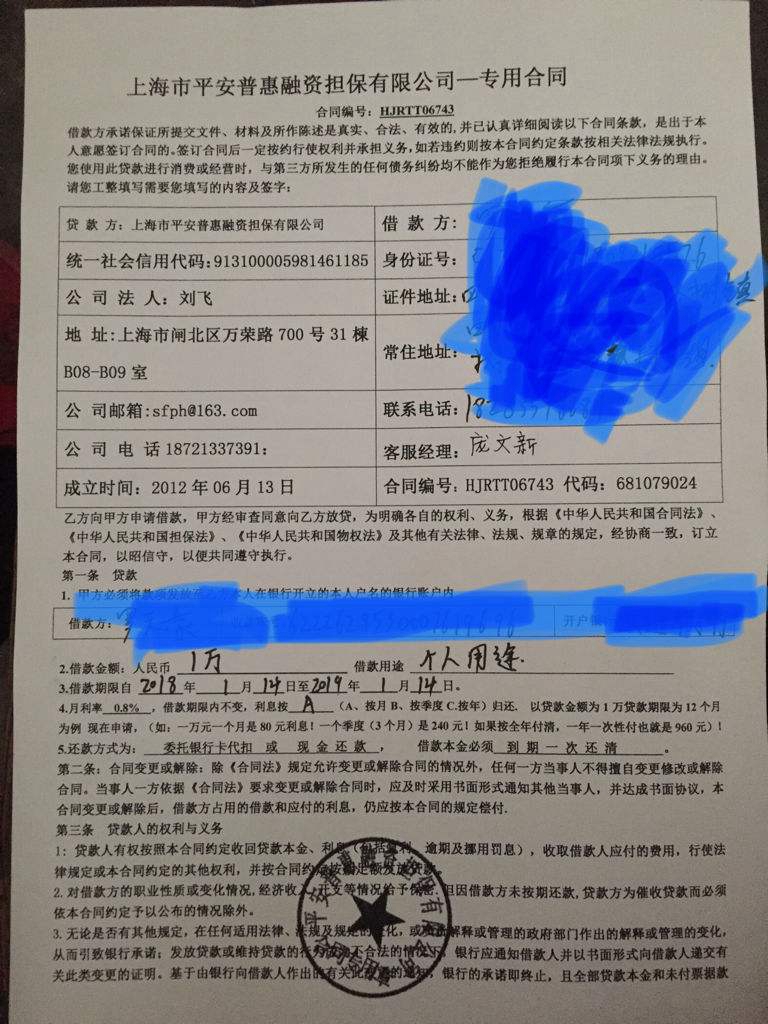 上海市平安普惠融资担保有限公司—专用合同
合同编号：HJRTT06743
借款方承诺保证所提交文件、材料及所作陈述是真实、合法、有效的,并已认真详细阅读以下合同条款，是出于本
人意愿签订合同的。签订合同后一定按约行使权利并承担义务,如若违约则按本合同约定条款按相关法律法规执行。
您使用此贷款进行消费或经营时，与第三方所发生的任何债务纠纷均不能作为您拒绝履行本合同项下义务的理由。
请您工整填写需要您填写的内容及签字：
贷 款 方：上海市平安普惠融资担保有限公司
借 款 方：
统一社会信用代码：913100005981461185
身份证号：
公 司 法 人：刘飞
证件地址：
镇
地 址:上海市闸北区万荣路 700 号 31 棟
B08-B09 室
常住地址：
公 司邮箱:sfph@163.com
联系电话：
公 司 电 话 18721337391：
客服经理：庞文新
成立时间：2012 年 06 月 13 日
合同编号：HJRTT06743 代码：681079024
乙方向甲方申请借款，甲方经审查同意向乙方放贷，为明确各自的权利、义务，根据《中华人民共和国合同法》、
《中华人民共和国担保法》、《中华人民共和国物权法》及其他有关法律、法规、规章的规定，经协商一致，订立
本合同，以昭信守，以便共同遵守执行。
第一条 贷款
1. 甲方必须将款项发放至乙方本人在银行开立的本人户名的银行账户内
借款方：
开户银
2.借款金额：人民币 1万 借款用途 个人用途.
3.借款期限自 2018 年 1 月 14 日至 2019 年 1 月 14 日。
4.月利率 0.8% ，借款期限内不变，利息按 A （A、按月 B、按季度 C.按年）归还. 以贷款金额为 1 万贷款期限为 12 个月
为例 现在申请，（如：一万元一个月是 80 元利息！一个季度（3 个月）是 240 元！如果按全年付清，一年一次性付也就是 960 元）！
5.还款方式为： 委托银行卡代扣 或 现 金 还 款 ， 借款本金必须 到 期 一 次 还 清 。
第二条：合同变更或解除：除《合同法》规定允许变更或解除合同的情况外，任何一方当事人不得擅自变更修改或解除
合同。当事人一方依据《合同法》要求变更或解除合同时，应及时采用书面形式通知其他当事人，并达成书面协议，本
合同变更或解除后，借款方占用的借款和应付的利息，仍应按本合同的规定偿付.
第三条 贷款人的权利与义务
1：贷款人有权按照本合同约定收回贷款本金、利息（包括复利、逾期及挪用罚息），收取借款人应付的费用，行使法
律规定或本合同约定的其他权利，并按合同约定按期足额发放贷款。
2. 对借款方的职业性质或变化情况,经济收入开支等情况给予保密,但因借款方未按期还款,贷款方为催收贷款而必须
依本合同约定予以公布的情况除外。
3. 无论是否有其他规定，在任何适用法律、法规及规定的变化，或负责解释或管理的政府部门作出的解释或管理的变化，
从而引致银行承诺；发放贷款或维持贷款的行为成为不合法的情况下，银行应通知借款人并以书面形式向借款人递交有
关此类变更的证明。基于由银行向借款人作出的有关此变更的通知，银行的承诺即终止，且全部贷款本金和未付票据款